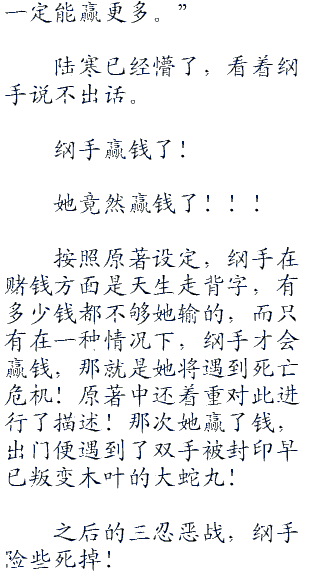 一定能赢更多。”
陆寒已经懵了，看着纲
手说不出话。
纲手赢钱了！
她竟然赢钱了！！！
按照原著设定，纲手在
赌钱方面是天生走背字，有
多少钱都不够她输的，而只
有在一种情况下，纲手才会
赢钱，那就是她将遇到死亡
危机！原著中还着重对此进
行了描述！那次她赢了钱，
出门便遇到了双手被封印早
已叛变木叶的大蛇丸！
之后的三忍恶战，纲手
险些死掉！